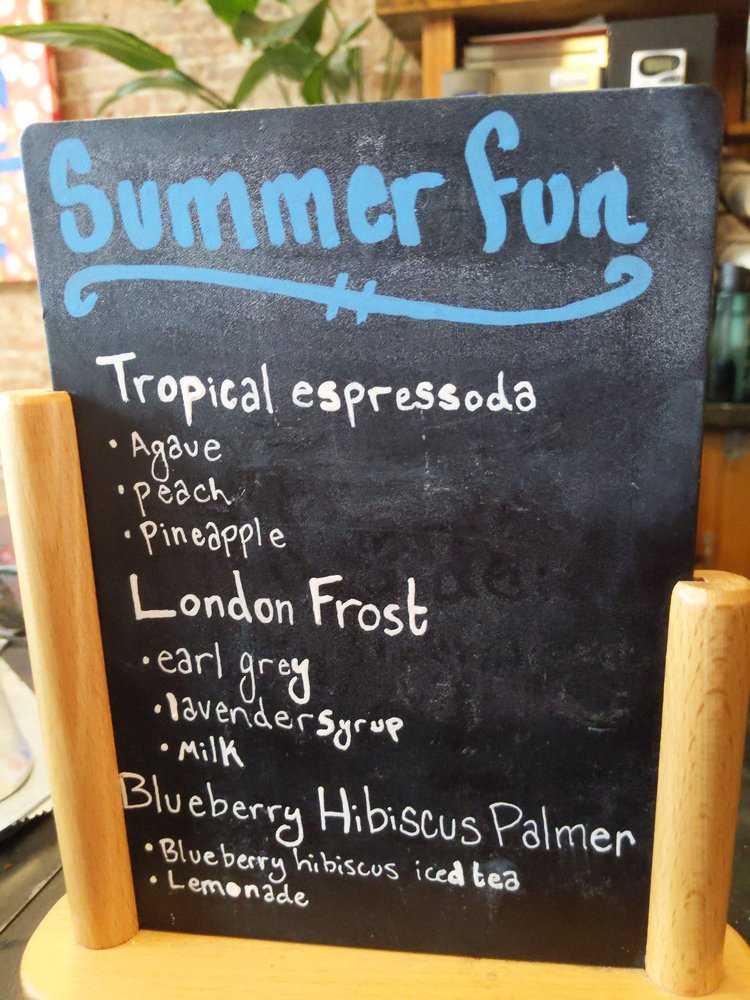 Summer fun
Tropical espressoda
• Agave
• peach
• Pineapple
London Frost
• earl grey
• lavender syrup
• Milk
Blueberry Hibiscus Palmer
• Blueberry hibiscus iced tea
• Lemonade